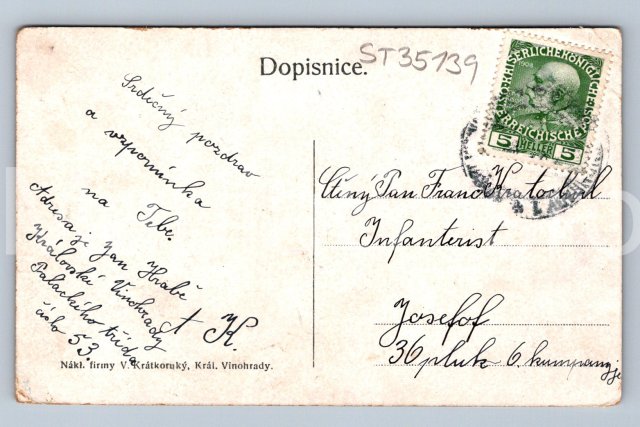 Dopisnice.
ST35139
KAISERLICHEKÖNIGLICHE
ÖSTERREICHISCHE
1908
5 HELLER 5
Srdečný pozdrav
a vzpomínka
na Tebe.
Adresa je Jan Hrabě
Královské Vinohrady
Palackého třída
číslo 53.
K.
Ctěný Pan Franc Kratochvil
Infanterist
Josefof
36 pluk 6. kumpanyje
Nákl. firmy V. Krátkoruký, Král. Vinohrady.